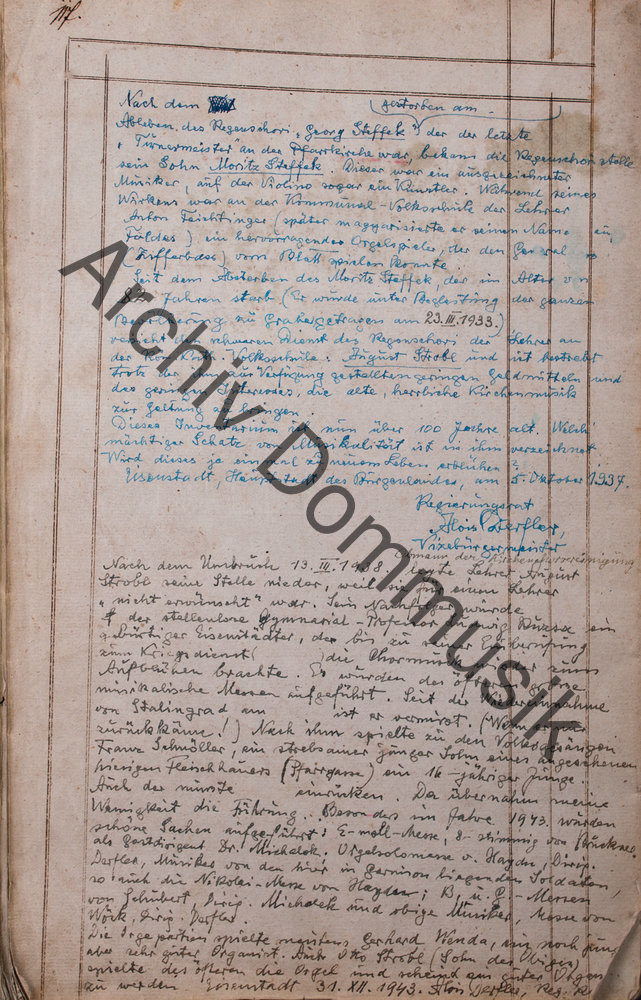 117.
Nach dem (gestorben am - )
Ableben des Regenschori „Georg Steffek", der der letzte
„Türnermeister an der Pfarrkirche war, bekam die Regenschoristelle
sein Sohn Moritz Steffek. Dieser war ein ausgezeichneter
Musiker, auf der Violine sogar ein Künstler. Während seines
Wirkens war an der Kommunal-Volksschule der Lehrer
Anton Feichtinger (später magyarisierte er seinen Namen in
Földes) ein hervorragender Orgelspieler, der den General
(Zifferbass) vom Blatt spielen konnte.
Seit dem Absterben des Moritz Steffek, der im Alter von
Jahren starb (Er wurde unter Begleitung der ganzen
Bevölkerung zu Grabe getragen am 23.III.1933.)
versieht den schweren Dienst des Regenschori der Lehrer an
der Volksschule: August Strobl und ist bestrebt
trotz der zur Verfügung gestellten geringen Geldmitteln und
des geringen Interesses, die alte, herrliche Kirchenmusik
zur Geltung zu bringen.
Dieses Inventarium ist nun über 100 Jahre alt. Welch
mächtiger Schatz von Musikalität ist in ihm verzeichnet
Wird dieses je einmal zu neuem Leben erblühen?
Eisenstadt, Hauptstadt des Burgenlandes, am 5. Oktober 1937.
Regierungsrat
Alois Derfler,
Vizebürgermeister
Obmann der Kirchenmusikvereinigung
Nach dem Umbruch 13.III.1938. legte Lehrer August
Strobl seine Stelle nieder, weil sie für einen Lehrer
„nicht erwünscht" war. Sein Nachfolger wurde
der stellenlose Gymnasial-Professor ein
gebürtiger Eisenstädter, der bis zu seiner Einberufung
zum Kriegsdienst ( ) die Chormusik wieder zum
Aufblühen brachte. Es wurden des öfteren große
musikalische Messen aufgeführt. Seit der Wiedereinnahme
von Stalingrad am ist er vermisst. (Wenn er nur
zurückkäme!) Nach ihm spielte zu den Volksgesängen
Franz Schmöller, ein strebsamer junger Sohn eines angesehenen
hiesigen Fleischhauers (Pfarrgasse) ein 16-jähriger Junge
Auch der musste einrücken. Da übernahm meine
Wenigkeit die Führung. Besonders im Jahre 1943. wurden
schöne Sachen aufgeführt: E-moll-Messe, 8-stimmig von Bruckner
als Gastdirigent Dr. Michalek. Orgelsolomesse v. Haydn, Dirig.
Derfler, Musiker von den hier in Garnison liegenden Soldaten,
so auch die Nikolai-Messe von Haydn; B. u. C.-Messen
von Schubert, Dirig. Michalek und obige Musiker, Messe von
Wöck, Dirig. Derfler.
Die Orgelpartien spielte meistens Gerhard Wanda, ein noch junger
aber sehr guter Organist. Auch Otto Strobl (Sohn des Obigen)
spielte des öfteren die Orgel und scheint ein guter
zu werden. Eisenstadt 31.XII.1943. Alois Derfler, Reg. R.
Archiv Dommusik